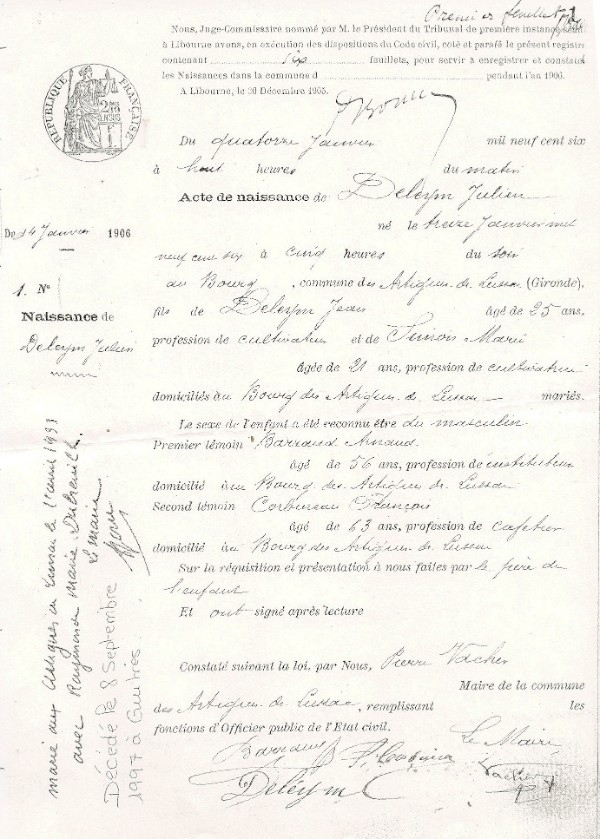 Premier feuillet
Nous, Juge-Commissaire nommé par M. le Président du Tribunal de première instance séant
à Libourne avons, en exécution des dispositions du Code civil, coté et parafé le présent registre
contenant six feuillets, pour servir à enregistrer et constater
les Naissances dans la commune d pendant l'an 1906.
A Libourne, le 30 Décembre 1905.
RÉPUBLIQUE FRANÇAISE
Du quatorze Janvier mil neuf cent six
à huit heures du matin
Acte de naissance de Deleym Julien
né le treize Janvier mil
neuf cent six à cinq heures du soir
au Bourg, commune des Artigues de Lussac (Gironde),
fils de Deleym Jean âgé de 25 ans,
profession de cultivateur et de Marie
âgée de 21 ans, profession de cultivateur
domiciliés au Bourg des Artigues de Lussac mariés.
Le sexe de l'enfant a été reconnu être du masculin
Premier témoin Barraud Arnaud
âgé de 56 ans, profession de instituteur
domicilié au Bourg des Artigues de Lussac
Second témoin Corbineau François
âgé de 63 ans, profession de cafetier
domicilié au Bourg des Artigues de Lussac
Sur la réquisition et présentation à nous faites par le père de
l'enfant
Et ont signé après lecture
Constaté suivant la loi, par Nous, Pierre Vacher
Maire de la commune
des Artigues de Lussac, remplissant les
fonctions d'Officier public de l'Etat civil.
Le Maire,
Barraud
Deléym
Vacher
Du 14 Janvier 1906
1. N°
Naissance de
Deleym Julien
marié aux Artigues de Lussac le 1933
avec Raymonde Marie
le maire
Décédé le 8 Septembre
1997 à Guîtres